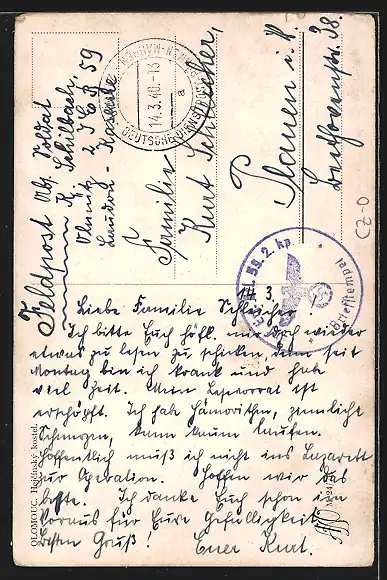 Feldpost
Abs. Soldat
K. Schilbach,
Olmütz
2 I.E.B. 59
Ludwig-Kaserne
14.3.40.-13
a
BÖHMEN-MÄHREN
DEUTSCHE DIENSTPOST
Familie
Kurt Schleicher,
Plauen i. V.
Beethovenstr. 38.
CZ-O
59. 2. Kp.
Briefstempel
14.3.
Liebe Familie Schleicher!
Ich bitte Euch höfl. mir doch wieder
etwas zu lesen zu schicken, denn seit
Montag bin ich krank und hab
viel Zeit. Mein Lesevorrat ist
erschöpft. Ich hab Hämorithen, ziemliche
Schmerzen, kann kaum laufen.
Hoffentlich muß ich nicht ins Lazarett
zur Operation. Hoffen wir das
beste. Ich danke Euch schon im
Voraus für Eure Gefälligkeit
Besten Gruß! Euer Kurt.
OLOMOUC. Hejčínský kostel.